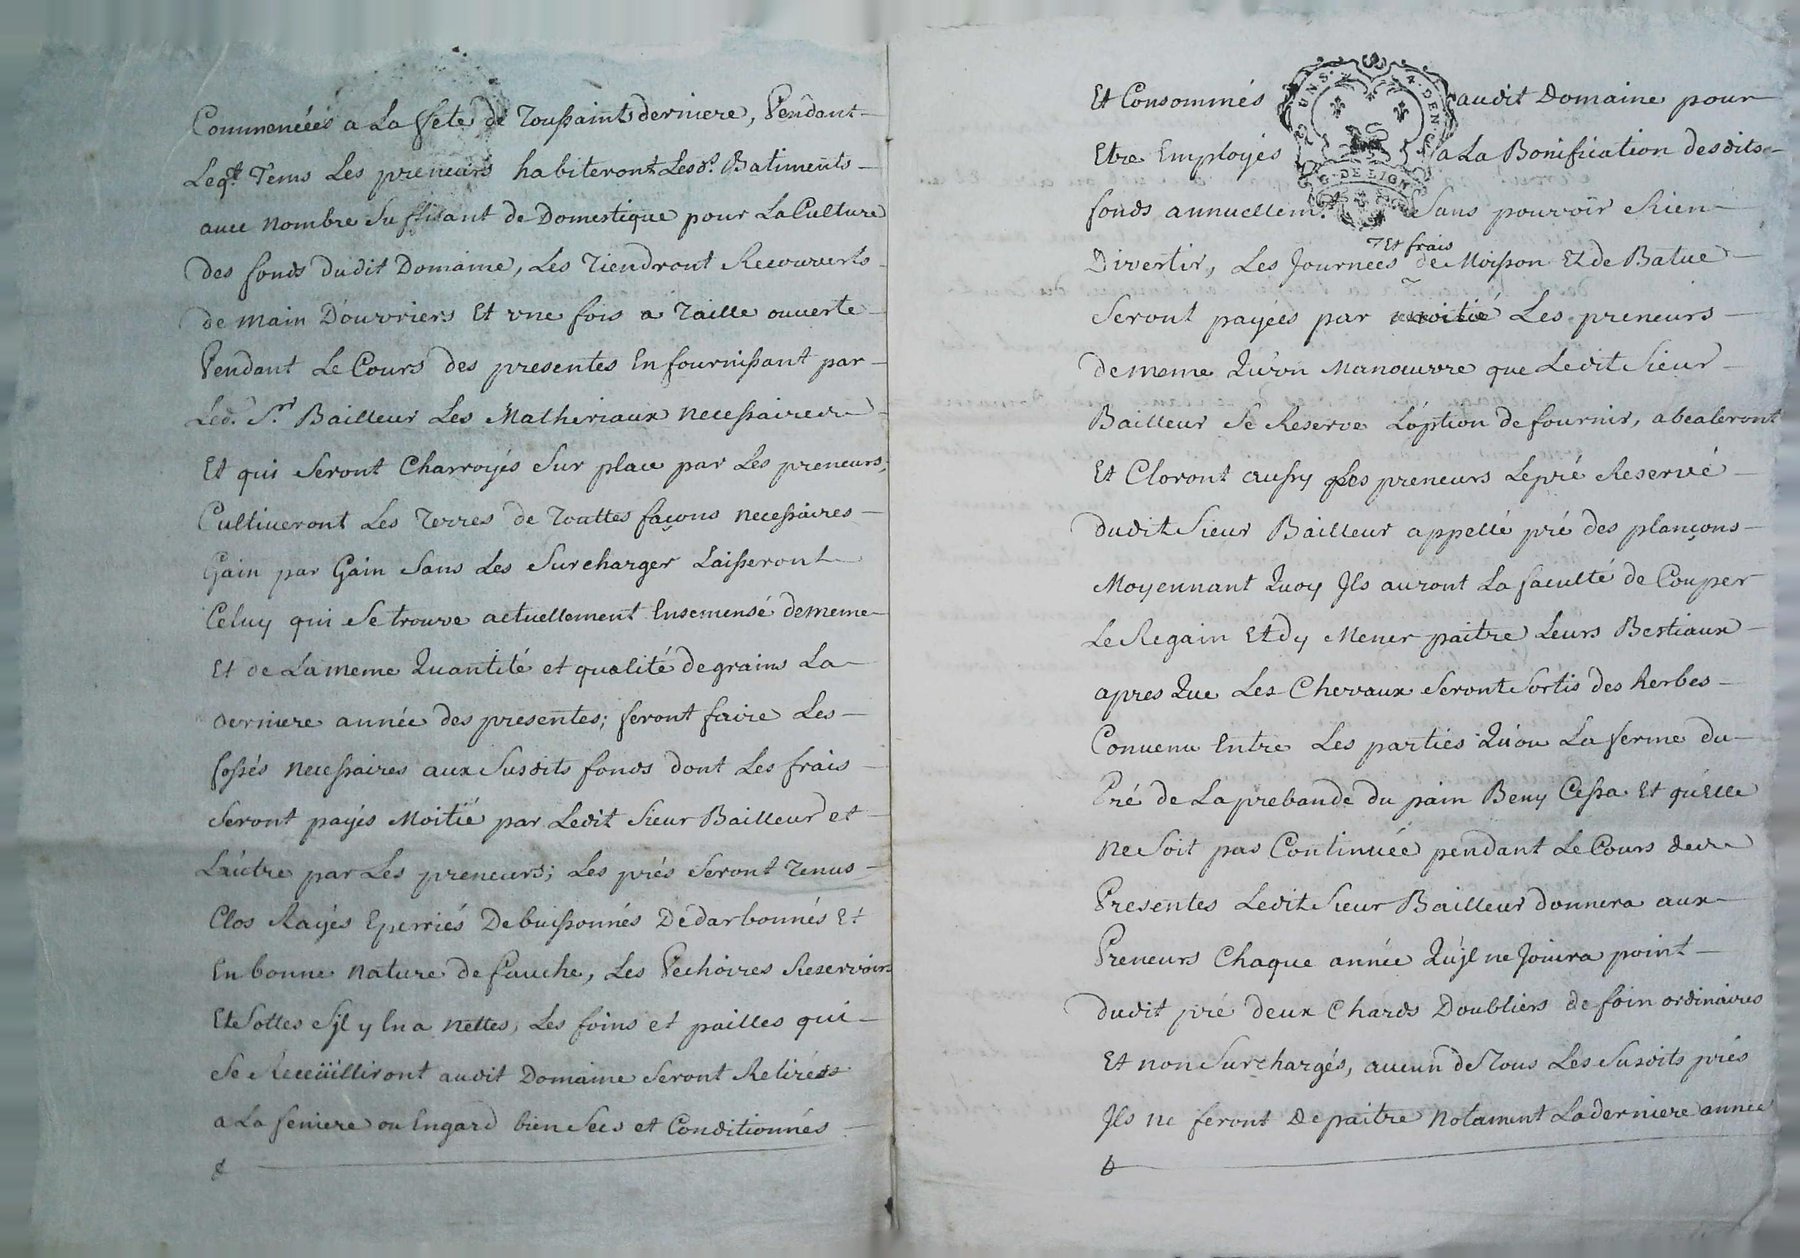 Commencéés a La fete de Toussaints derniere, Pendant
Leq.t Tems Les preneurs habiteront Lesd.s Batiments
avec nombre Suffisant de Domestique pour La Culture
des fonds dudit Domaine, Les Tiendront Recouverts
de main D'ouvriers Et vne fois a Taille ouverte
Pendant Le Cours des presentes En fournissant par
Led. S.r Bailleur Les Matheriaux necessaires
Et qui Seront Charroyés Sur place par Les preneurs,
Cultiveront Les Terres de Touttes façons necessaires
Gain par Gain Sans Les Surcharger Laisseront
Celuy qui Se trouve actuellement Ensemensé demême
Et de La meme Quantité et qualité de grains La
derniere année des presentes; feront faire Les
fossés necessaires aux Susdits fonds dont Les frais
Seront payés Moitié par Ledit Sieur Bailleur et
L'autre par Les preneurs; Les prés Seront Tenus
Clos Rayés Eperriés Debuissonnés Dédarbonnés Et
En bonne nature de fauche, Les Pechoires Reservoirs
Et Sottes S'jl y En a nettes, Les foins et pailles qui
Se Réceüilliront audit Domaine Seront Retirés
a La feniere ou Engard bien Secs et Conditionnés
Et Consommés audit Domaine pour
Etre Employés a La Bonification desdits
fonds annuellem.t Sans pouvoir Rien
Et frais
Divertir, Les Journées de Moisson Et de Batue
Seront payées par Les preneurs
de meme Qu'vn Manœuvre que Ledit Sieur
Bailleur Se Reserve L'option de fournir, abealeront
Et Cloront aussy Les preneurs Le pré Reservé
dudit Sieur Bailleur appellé pré des plançons
Moyennant Quoy Jls auront La faculté de Couper
Le Regain Et d'y Mener paitre Leurs Bestiaux
apres Que Les Chevaux Seront Sortis des herbes
Convenu Entre Les parties Qu'ou La ferme du
Pré de La prebande du pain Beny Cessa Et qu'Elle
ne Soit pas Continuée pendant Le Cours des
Presentes Ledit Sieur Bailleur donnera aux
Preneurs Chaque année Qu'jl ne Jouira point
dudit pré deux Chards Doubliers de foin ordinaires
Et non Surchargés, aucun de Tous Les Susdits prés
Jls ne feront Depaitre Notament La derniere année